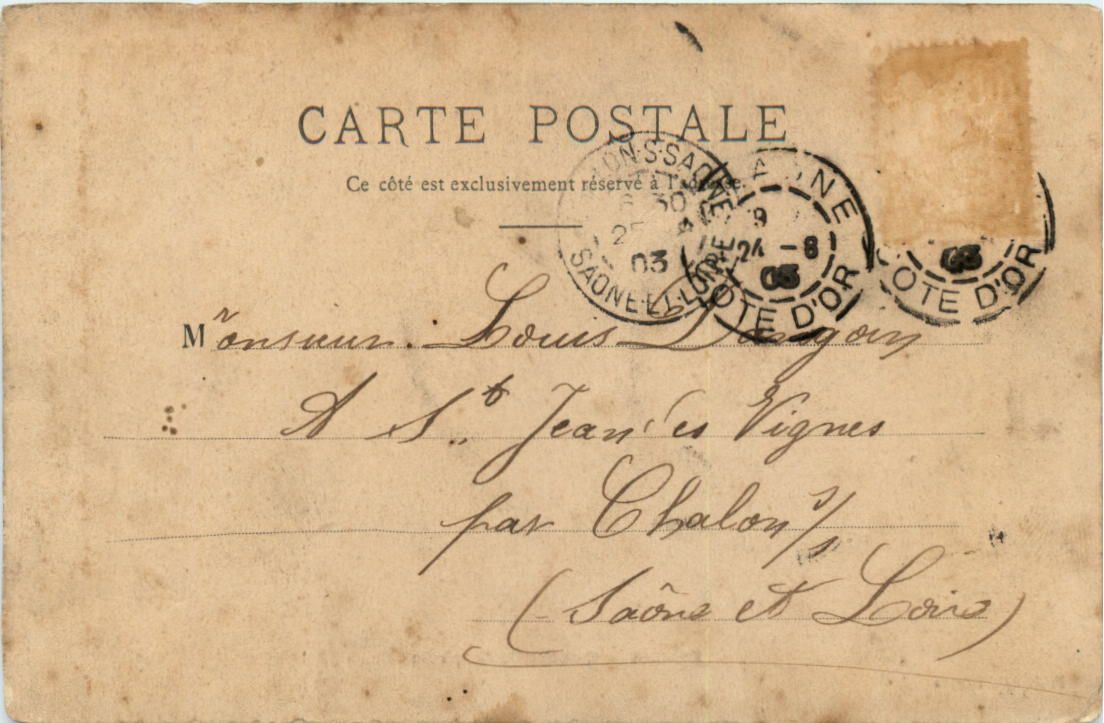 CARTE POSTALE
Ce côté est exclusivement réservé à l'adresse.
ON-S-SAONE
6 30
25
03
SAONE-ET-LOIRE
9
24 -8
03
COTE D'OR
03
COTE D'OR
Monsieur Louis
A St Jean des Vignes
par Chalon s/s
(Saône et Loire)